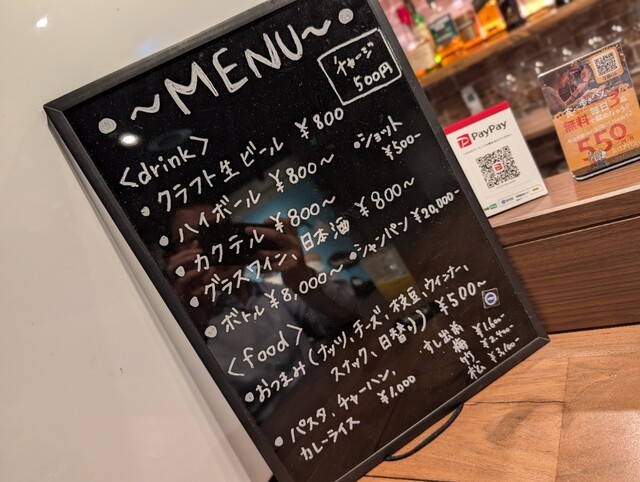 ~MENU~
チャージ
500円
<drink>
・クラフト生ビール ¥800
・ハイボール ¥800~
・ショット
¥500-
・カクテル ¥800~
・グラスワイン、日本酒 ¥800~
・ボトル ¥8,000~
・シャンパン ¥20,000-
<food>
・おつまみ(ナッツ、チーズ、枝豆、ウィンナー、
スナック、日替り) ¥500~
・パスタ、チャーハン、
カレーライス ¥1,000
すし出前
梅 ¥1,600-
竹 ¥2,400-
松 ¥3,100-
PayPay
無料
550